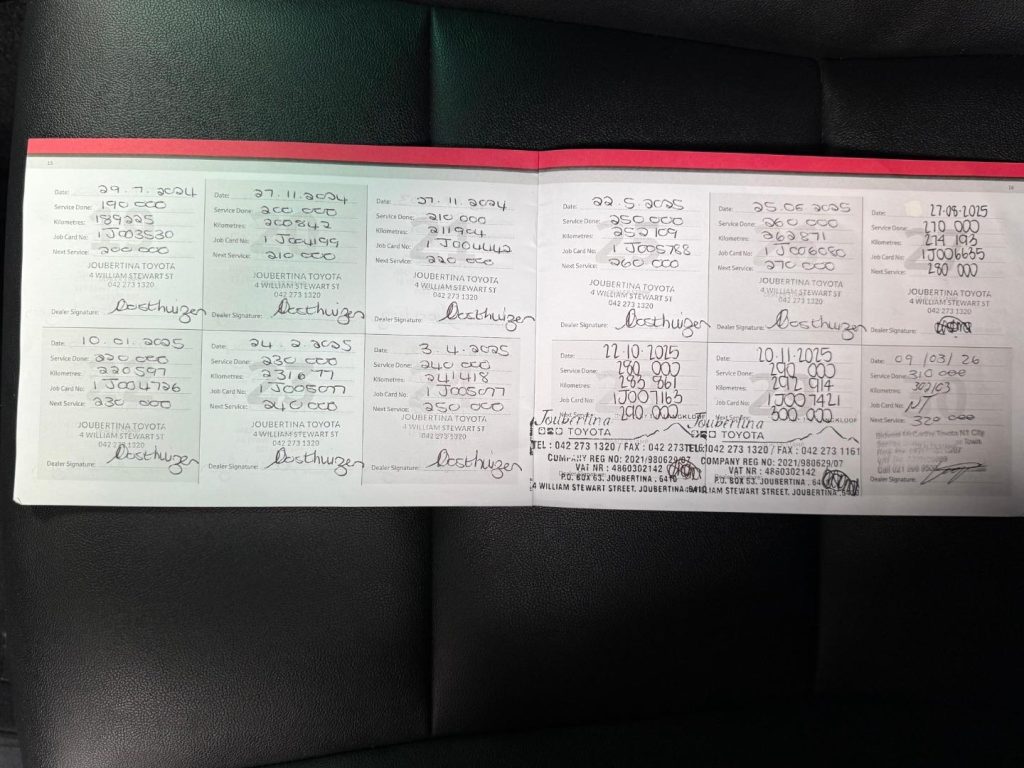 15
Date: 29.7.2024
Service Done: 190 000
Kilometres: 189225
Job Card No: 1J003530
Next Service: 200 000
JOUBERTINA TOYOTA
4 WILLIAM STEWART ST
042 273 1320
Dealer Signature: Oosthuizen
Date: 27.11.2024
Service Done: 200 000
Kilometres: 200842
Job Card No: 1J004199
Next Service: 210 000
JOUBERTINA TOYOTA
4 WILLIAM STEWART ST
042 273 1320
Dealer Signature: Oosthuizen
Date: 27.11.2024
Service Done: 210 000
Kilometres: 211904
Job Card No: 1J004442
Next Service: 220 000
JOUBERTINA TOYOTA
4 WILLIAM STEWART ST
042 273 1320
Dealer Signature: Oosthuizen
Date: 10.01.2025
Service Done: 220 000
Kilometres: 220597
Job Card No: 1J004726
Next Service: 230 000
JOUBERTINA TOYOTA
4 WILLIAM STEWART ST
042 273 1320
Dealer Signature: Oosthuizen
Date: 24.2.2025
Service Done: 230 000
Kilometres: 231677
Job Card No: 1J005077
Next Service: 240 000
JOUBERTINA TOYOTA
4 WILLIAM STEWART ST
042 273 1320
Dealer Signature: Oosthuizen
Date: 3.4.2025
Service Done: 240 000
Kilometres: 241418
Job Card No: 1J005077
Next Service: 250 000
JOUBERTINA TOYOTA
4 WILLIAM STEWART ST
042 273 1320
Dealer Signature: Oosthuizen
16
Date: 22.5.2025
Service Done: 250 000
Kilometres: 252109
Job Card No: 1J005788
Next Service: 260 000
JOUBERTINA TOYOTA
4 WILLIAM STEWART ST
042 273 1320
Dealer Signature: Oosthuizen
Date: 25.06.2025
Service Done: 260 000
Kilometres: 262871
Job Card No: 1J006080
Next Service: 270 000
JOUBERTINA TOYOTA
4 WILLIAM STEWART ST
042 273 1320
Dealer Signature: Oosthuizen
Date: 27.08.2025
Service Done: 270 000
Kilometres: 274 193
Job Card No: 1J006635
Next Service: 280 000
JOUBERTINA TOYOTA
4 WILLIAM STEWART ST
042 273 1320
Dealer Signature:
Date: 22.10.2025
Service Done: 280 000
Kilometres: 283 861
Job Card No: 1J007163
Next Service: 290 000
Joubertina
TOYOTA
TEL : 042 273 1320 / FAX : 042 273
COMPANY REG NO: 2021/980629/07
VAT NR : 4860302142
P.O. BOX 53, JOUBERTINA, 6410
4 WILLIAM STEWART STREET, JOUBERTINA, 6410
Date: 20.11.2025
Service Done: 290 000
Kilometres: 292 914
Job Card No: 1J007421
Next Service: 300.000
Joubertina
TOYOTA
042 273 1320 / FAX : 042 273 1161
COMPANY REG NO: 2021/980629/07
VAT NR : 4860302142
P.O. BOX 53, JOUBERTINA, 6410
WILLIAM STEWART STREET, JOUBERTINA,
Date: 09/03/26
Service Done: 310 000
Kilometres: 302103
Job Card No: NT
Next Service: 320 000
Bidvest McCarthy Toyota N1 City
Dealer Signature: